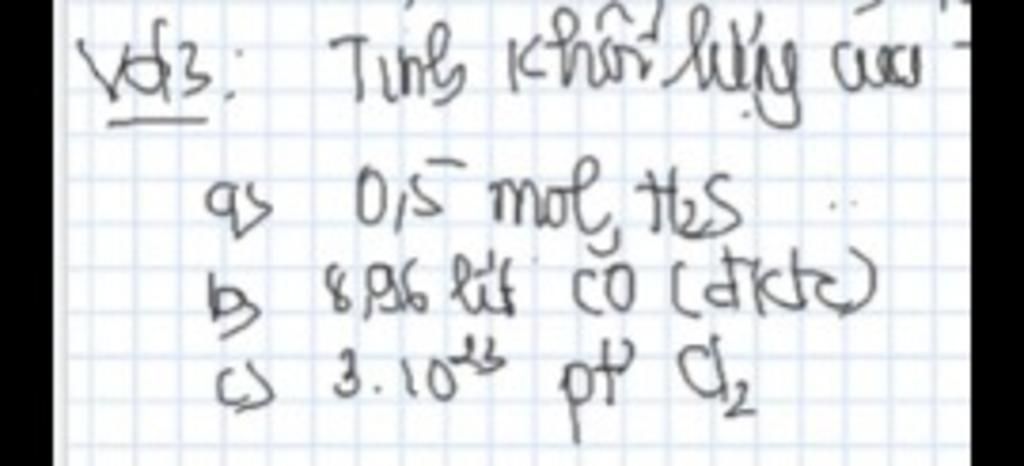 Vd3: Tính khối lượng của
a) 0,5 mol H₂S
b) 8,96 lít CO (đktc)
c) 3.10²³ pt Cl₂